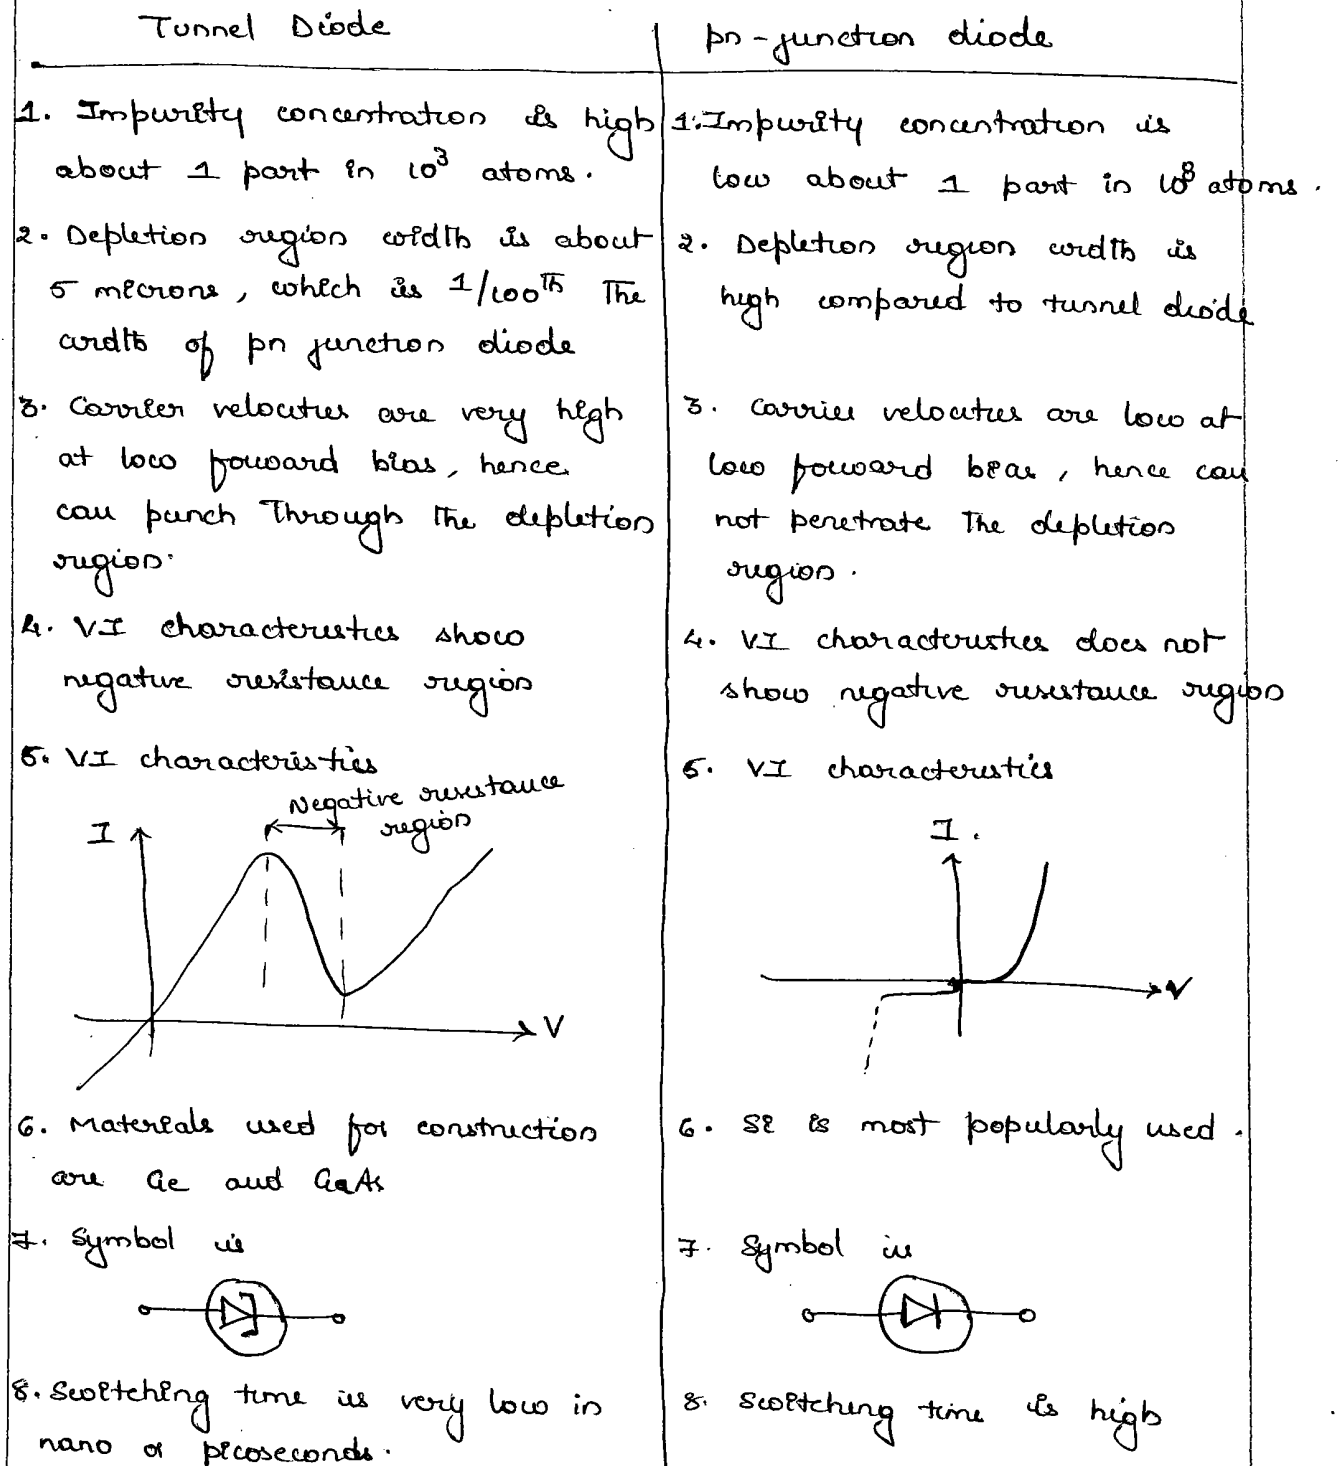 Tunnel Diode
pn-junction diode
1. Impurity concentration is high
about 1 part in 10³ atoms.
2. Depletion region width is about
5 microns, which is 1/100th the
width of pn junction diode
3. Carrier velocities are very high
at low forward bias, hence
can punch through the depletion
region.
4. VI characteristics show
negative resistance region
5. VI characteristics
Negative resistance
region
I
V
6. Materials used for construction
are Ge and GaAs
7. Symbol is
8. Switching time is very low in
nano or picoseconds.
1. Impurity concentration is
low about 1 part in 10⁸ atoms.
2. Depletion region width is
high compared to tunnel diode
3. Carrier velocities are low at
low forward bias, hence can
not penetrate the depletion
region.
4. VI characteristics does not
show negative resistance region
5. VI characteristics
I.
V
6. Si is most popularly used.
7. Symbol is
8. Switching time is high